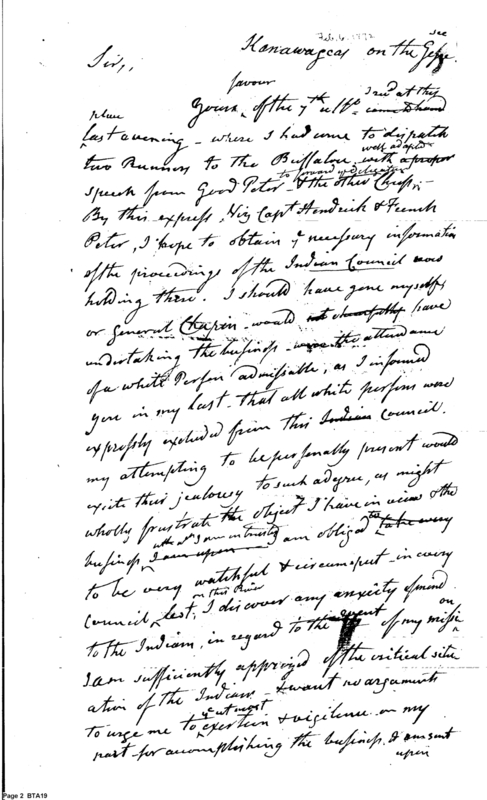 Feb. 6. 1792
Kanawageas on the Gene
see
Sir,,
favour
Yours of the 7th ulto I recd at this
place
last evening - where I had come to dispatch
two Runners to the Buffaloe, with a proper
well adapted
speech from Good Peter & the other Chiefs,-
By this express, Viz Capt Hendrick & French
Peter, I hope to obtain ye necessary information
of the proceedings of the Indian Council now
holding there. I should have gone myself
or general Chapin would not chearfully have
undertaking the business - were the attendance
of a white Person admissable, as I informed
you in my last - that all white persons were
expressly excluded from this Indian Council.
my attempting to be personally present would
excite their jealousy to such a degree, as might
wholly frustrate the object I have in view & the
with wh I am intrusted
business I am upon am obliged to take every
to be very watchful & circumspect - in every
on this River
Council, lest, I discover any anxiety of mind
to the Indians, in regard to the event of my missi
on
I am sufficiently apprized of the critical situ
ation of the Indians - & want no arguments
utmost
to urge me to exertion & vigilence on my
part for accomplishing the business, & am sent
upon
Page 2 BTA19